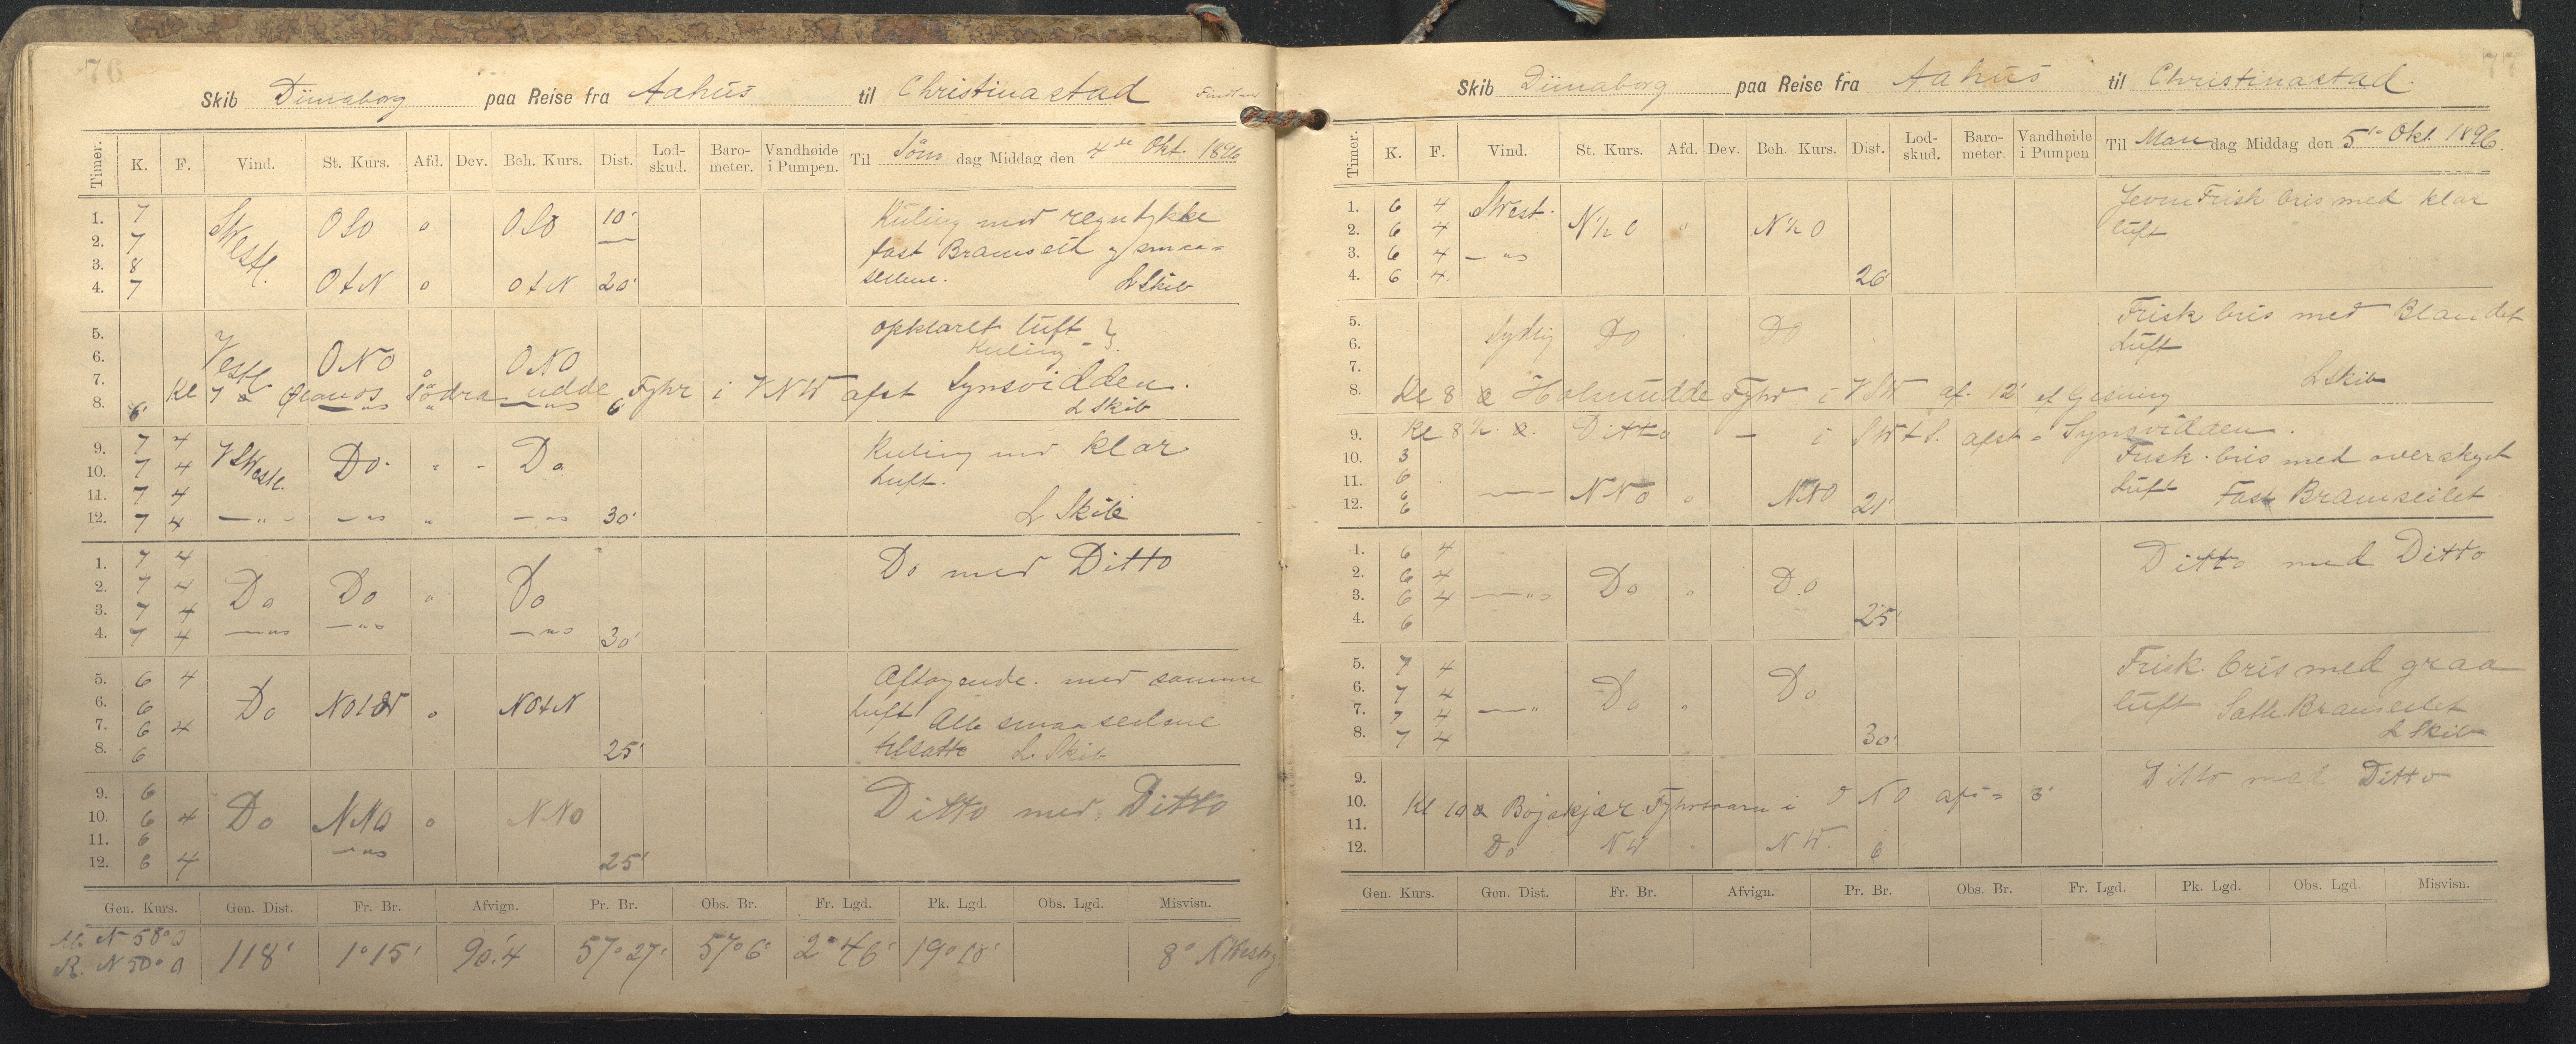 76
Skib Dünaborg paa Reise fra Aahus til Christinastad
Timer. K. F. Vind. St. Kurs. Afd. Dev. Beh. Kurs. Dist. Lod-skud. Baro-meter. Vandhøide i Pumpen. Til Søns dag Middag den 4de Okt. 1896
1. 7 SWestl. OSO " OSO 10' Kuling med regntykke
2. 7 fast Bramseil og smaa=
3. 8 seilene.
4. 7 OtN " OtN 20' L Skib
5. opklaret luft
6. Vestl ONO " ONO Kuling
7. Kl 7 Södra udde Fyhr i VNW afst Synsvidden.
8. 6' 6' L Skib
9. 7 4 Kuling med klar
10. 7 4 VSWestl. Do. " - Do Luft.
11. 7 4
12. 7 4 —"— —"— " —"— 30' L Skib
1. 7 4 Do med Ditto
2. 7 4 Do Do " Do
3. 7 4
4. 7 4 —"— —"— —"— 30'
5. 6 4 Aftagende. med samme
6. 6 Do " NOtN Luft Alle smaaseilene
7. 6 4 tilsatte L. Skib
8. 6 25'
9. 6 Ditto med Ditto
10. 6 4 Do NNO " NNO
11. 6
12. 6 4 —"— 25'
Gen. Kurs. Gen. Dist. Fr. Br. Afvign. Pr. Br. Obs. Br. Fr. Lgd. Pk. Lgd. Obs. Lgd. Misvisn.
N 58° O
R. N 50° O 118' 1°15' 90.'4 57°27' 57°6' 2°46' 19°18' 8° NWestg
77
Skib Dünaborg paa Reise fra Aahus til Christinastad.
Timer. K. F. Vind. St. Kurs. Afd. Dev. Beh. Kurs. Dist. Lod-skud. Baro-meter. Vandhøide i Pumpen Til Mandag Middag den 5te Okt. 1896.
1. 6 4 SWest. Jevn Frisk bris med klar
2. 6 4 N½O " N½O luft
3. 6 4 —"—
4. 6 4 26'
5. Frisk bris med Blandet
6. Sydlig Do Do Luft
7. L Skib
8. Kl 8 Holmudde Fyhr i VSW af. 12' ef Gisning
9. Kl 8½. Ditto — i SWtS. afst = Synsvidden.
10. 3 Frisk bris med overskyet
11. 6 Luft Fast Bramseilet
12. 6 —"— NNO " NNO 21'
1. 6 4 Ditto med Ditto
2. 6 4 Do " Do
3. 6 4 —"—
4. 6 25'
5. 7 4 Frisk bris med graa
6. 7 4 Do Do luft Satte Bramseilet
7. 7 4 —"— "
8. 7 4 30' L Skib
9. Ditto med Ditto
10. Kl 10 Bojskjær Fyhrtaarn i ONO afs = 3'
11.
12. Do NW NW. 6'
Gen. Kurs. Gen. Dist. Fr. Br. Afvign. Pr. Br. Obs. Br. Fr. Lgd. Pk. Lgd. Obs. Lgd. Misvisn.